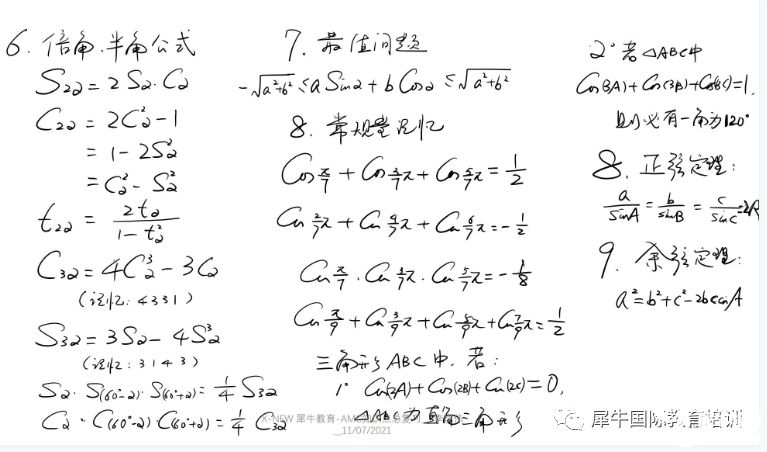 6. 倍角.半角公式
S₂₂ = 2 S₂ · C₂
C₂₂ = 2C₂² - 1
= 1 - 2S₂²
= C₂² - S₂²
t₂₂ = 2t₂ / (1 - t₂²)
C₃₂ = 4C₂³ - 3C₂
(记忆: 4 3 3 1)
S₃₂ = 3S₂ - 4S₂³
(记忆: 3 1 4 3)
S₂ · S(60°-2) · S(60°+2) = 1/4 S₃₂
C₂ · C(60°-2) · C(60°+2) = 1/4 C₃₂
7. 最值问题
-√(a²+b²) ≤ a Sin2 + b Cos2 ≤ √(a²+b²)
8. 常规量记忆
Cos π/7 + Cos 3/7 π + Cos 5/7 π = 1/2
Cos 2/7 π + Cos 4/7 π + Cos 6/7 π = -1/2
Cos π/7 · Cos 3/7 π · Cos 5/7 π = -1/8
Cos π/9 + Cos 3/9 π + Cos 5/9 π + Cos 7/9 π = 1/2
三角形 ABC 中. 若:
1° Cos(2A) + Cos(2B) + Cos(2C) = 0,
△ABC 为 三角形
X-NEW 犀牛教育-AM
_11/07/2021
2° 若 △ABC 中
Cos(3A) + Cos(3B) + Cos(3C) = 1,
则必有一角为 120°
8. 正弦定理:
a/SinA = b/SinB = c/Sinc = 2R
9. 余弦定理:
a² = b² + c² - 2bc cosA
犀牛国际教育培训